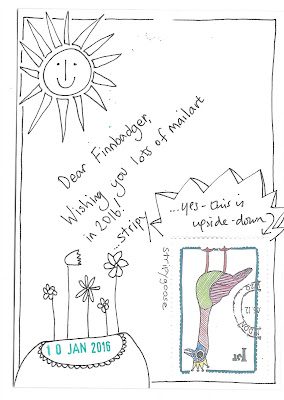 Dear Finnbadger,
Wishing you lots of mailart
in 2016!
...stripy
...yes-this is
upside-down
stripygoose
10 JAN 2016
1st